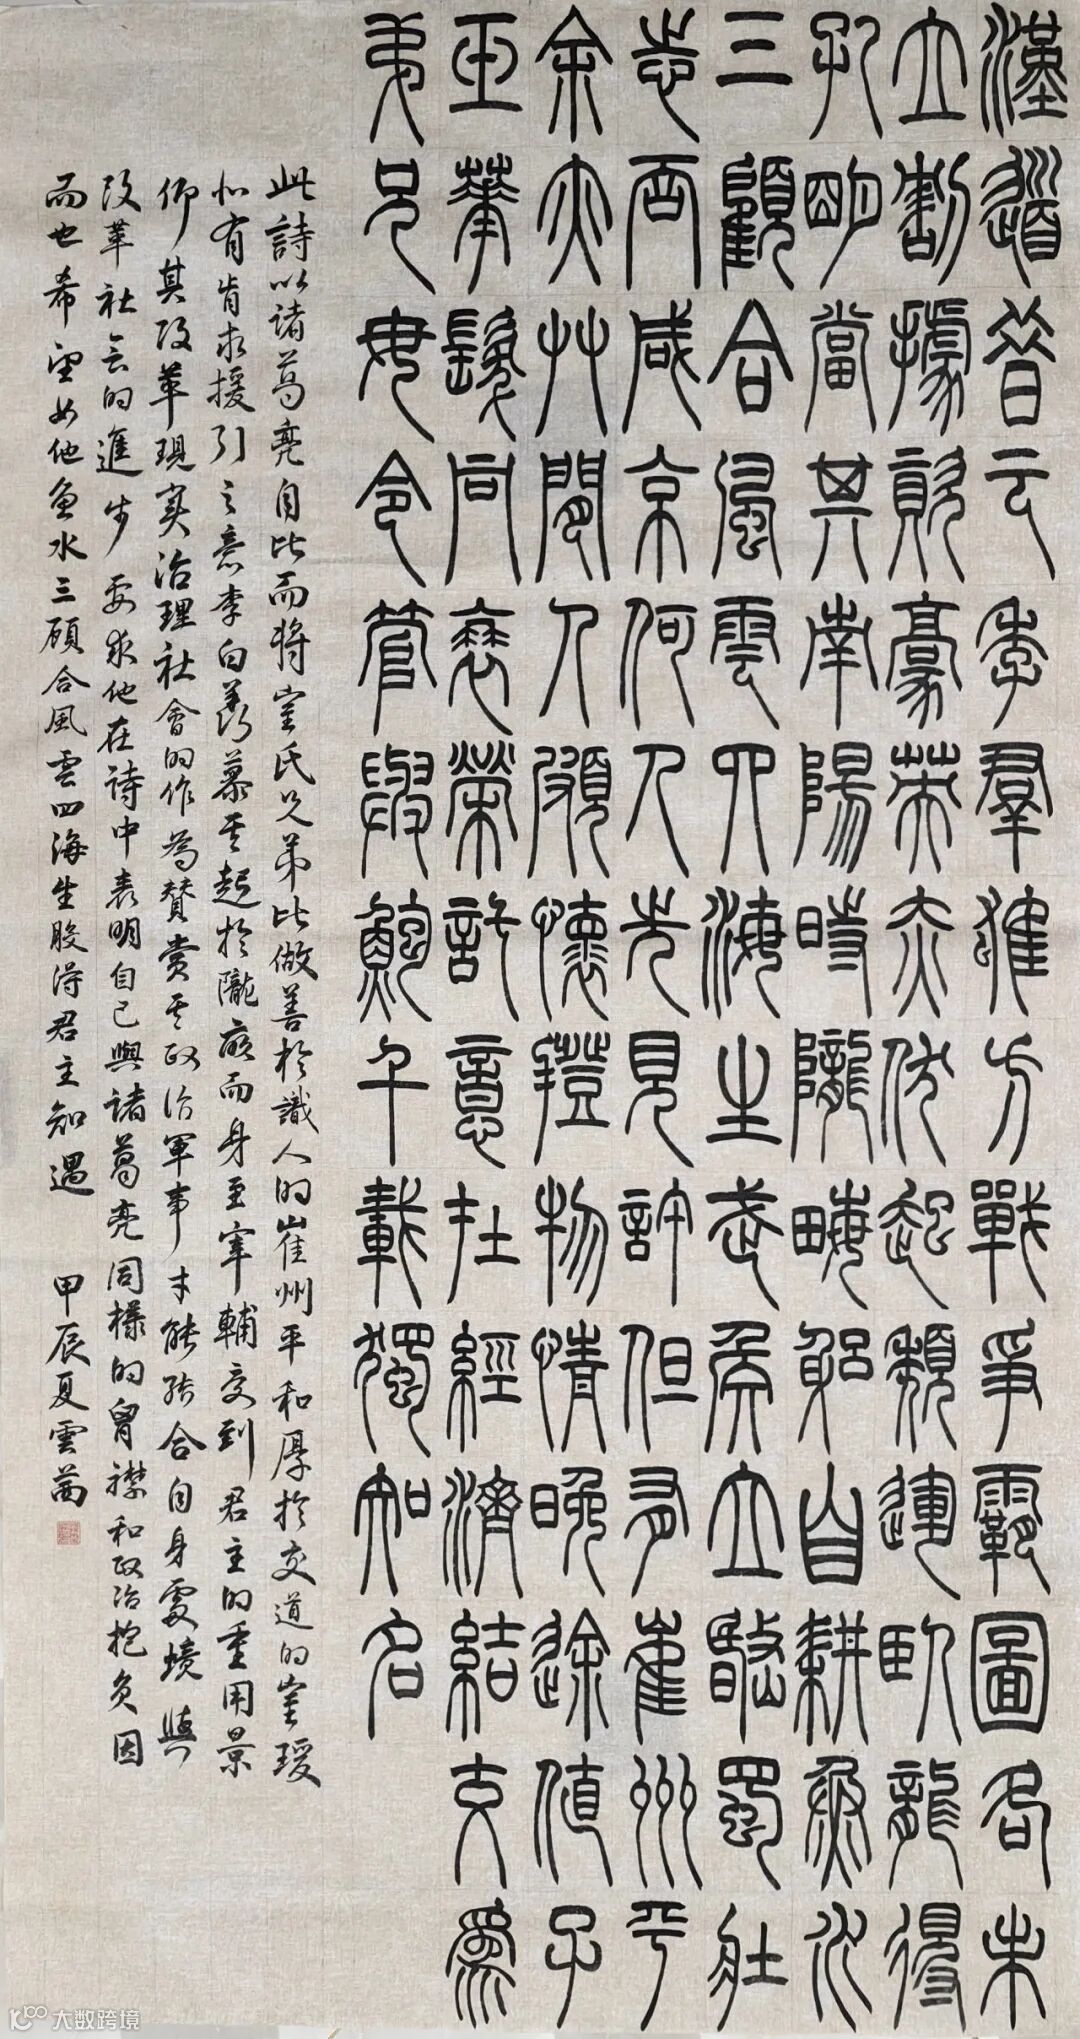 漢道昔云季群雄方戰爭霸圖各未
立割據資豪英赤伏起頹運臥龍得
孔明當其南陽時隴畝躬自耕魚水
三顧合風雲四海生武侯立岷蜀壯
志吞咸京何人先見許但有崔州平
余亦草間人頗懷拯物情晚途值子
玉華髮同衰榮託意在經濟結交為
弟兄毋令管與鮑千載獨知名
此詩以諸葛亮自比而將崔氏兄弟比做善於識人的崔州平和厚於交道的崔瑗
似有肯求援引之意李白羨慕其起於隴畝而身至宰輔受到君主的重用景
仰其改革現实治理社會的作為贊赏其政治軍事才能结合自身處境與
改革社会的進步要求他在詩中表明自己與諸葛亮同樣的胸襟和政治抱负因
而也希望如他魚水三顾合風雲四海生般得君主知遇 甲辰夏雲茜
大数跨境